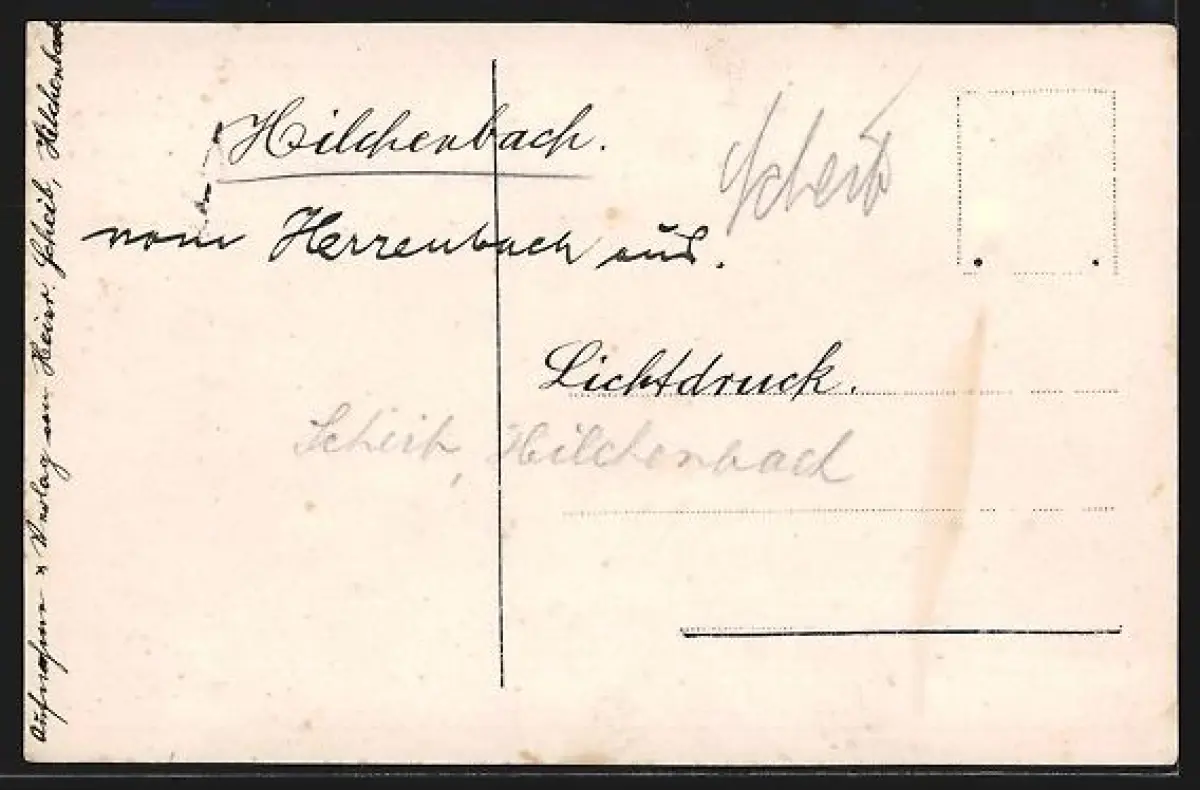 Hilchenbach.
Scheib
vom Herrenbach aus.
Lichtdruck.
Scheib, Hilchenbach
Aufnahme & Verlag von Heinr. Scheib, Hilchenbach